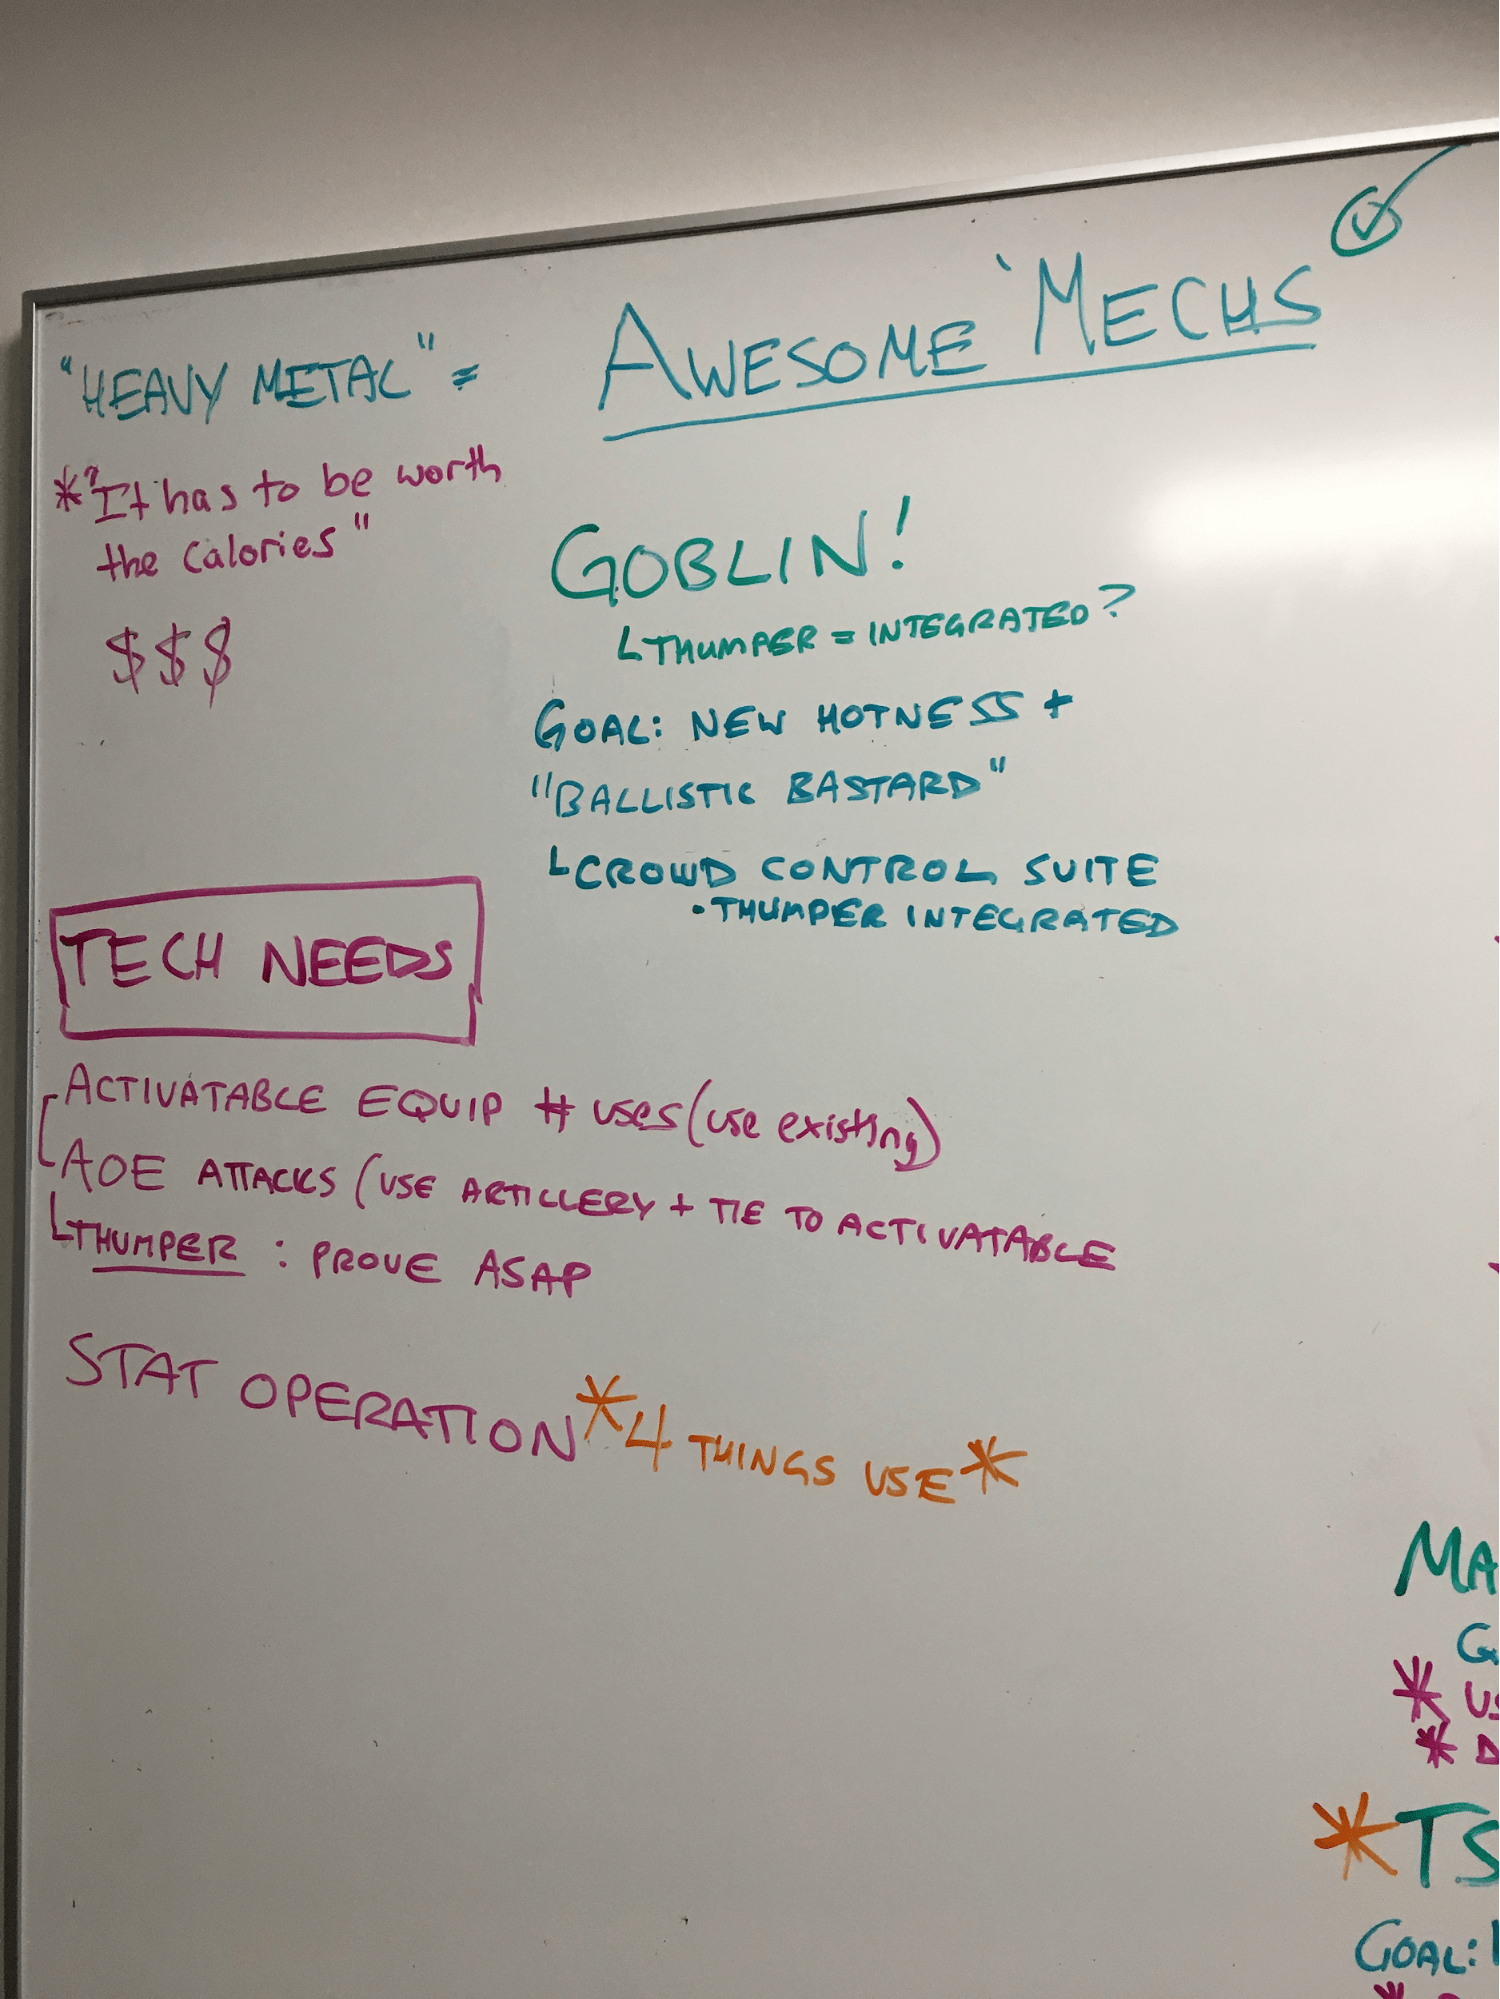 "HEAVY METAL" = AWESOME 'MECHS
*"It has to be worth
the calories"
$$$
GOBLIN!
THUMPER = INTEGRATED?
GOAL: NEW HOTNESS +
"BALLISTIC BASTARD"
CROWD CONTROL SUITE
• THUMPER INTEGRATED
TECH NEEDS
ACTIVATABLE EQUIP # uses (use existing)
AOE ATTACKS (USE ARTILLERY + TIE TO ACTIVATABLE
THUMPER : PROVE ASAP
STAT OPERATION *4 THINGS USE*
MA
G
* US
* D
*TS
GOAL: